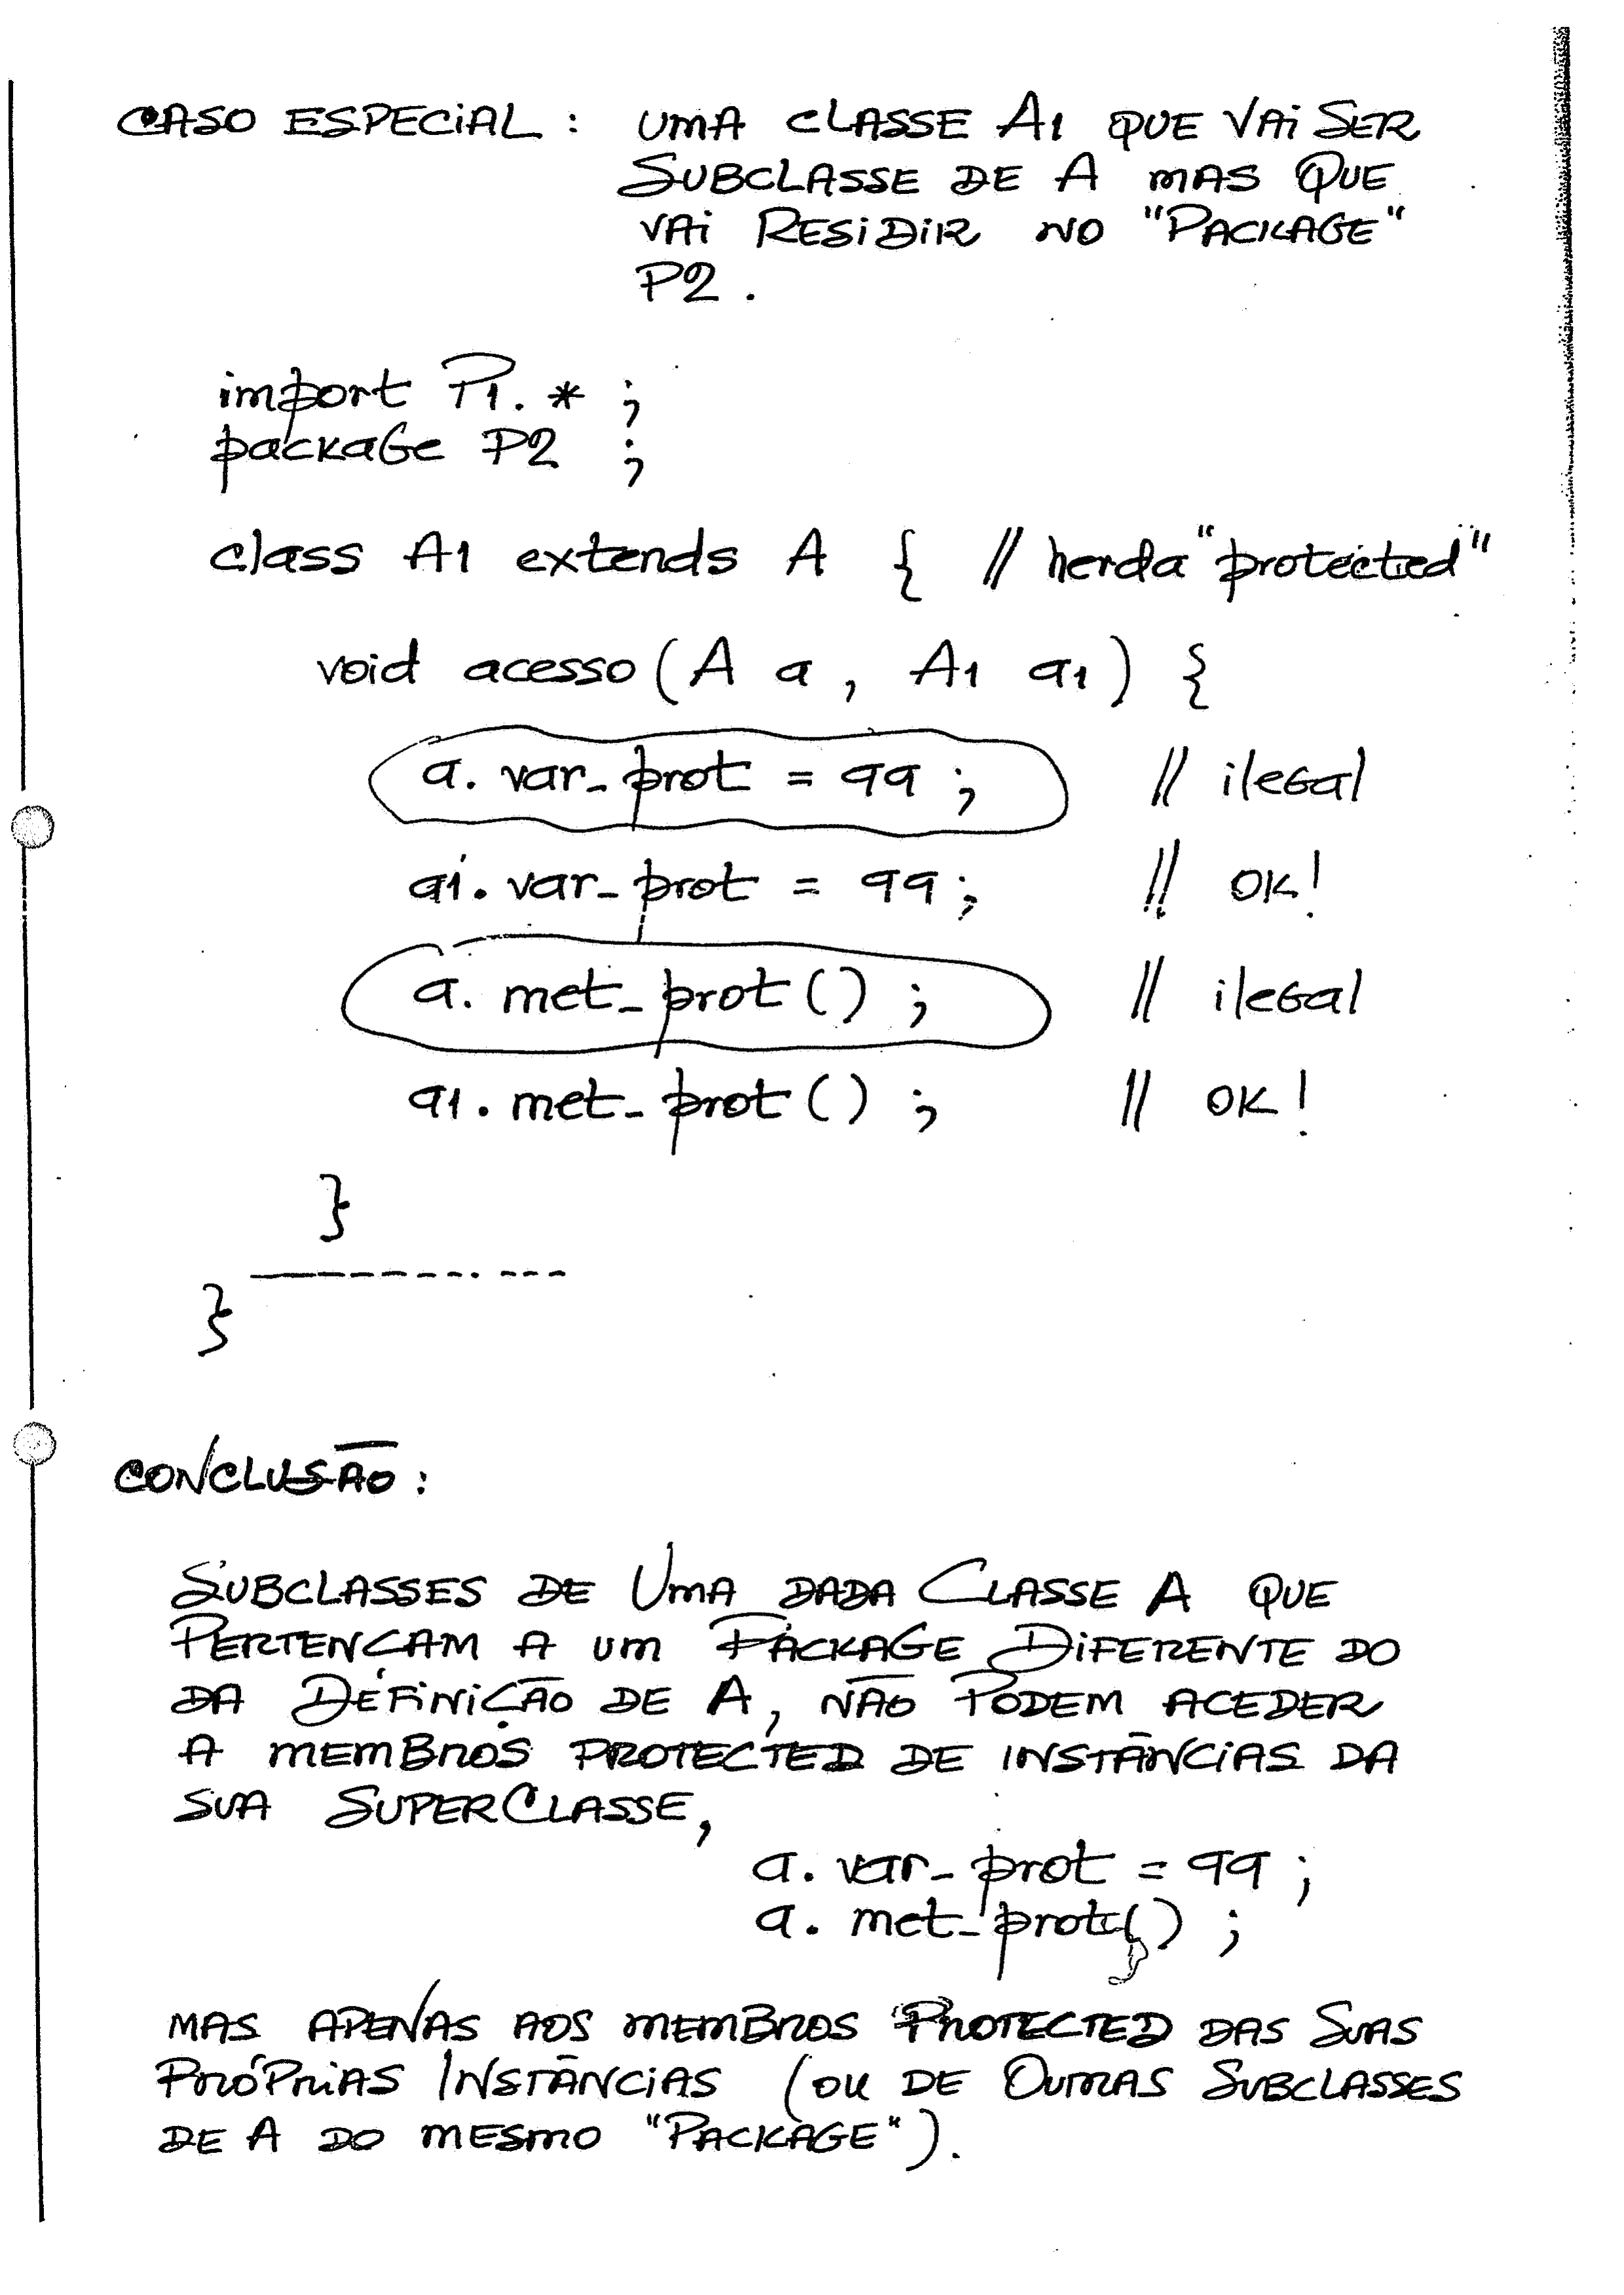 CASO ESPECIAL : UMA CLASSE A1 QUE VAI SER
SUBCLASSE DE A MAS QUE
VAI RESIDIR NO "PACKAGE"
P2 .
import P1. * ;
package P2 ;
class A1 extends A { // herda "protected"
void acesso (A a , A1 a1) {
a. var_prot = 99 ; // ilegal
a1. var_prot = 99 ; // OK!
a. met_prot () ; // ilegal
a1. met_prot () ; // OK!
}
----------- ---
}
CONCLUSÃO :
SUBCLASSES DE UMA DADA CLASSE A QUE
PERTENÇAM A UM PACKAGE DIFERENTE DO
DA DEFINIÇÃO DE A, NÃO PODEM ACEDER
A MEMBROS PROTECTED DE INSTÂNCIAS DA
SUA SUPERCLASSE,
a. var_prot = 99 ;
a. met_prot() ;
MAS APENAS AOS MEMBROS PROTECTED DAS SUAS
PRÓPRIAS INSTÂNCIAS (OU DE OUTRAS SUBCLASSES
DE A DO MESMO "PACKAGE").